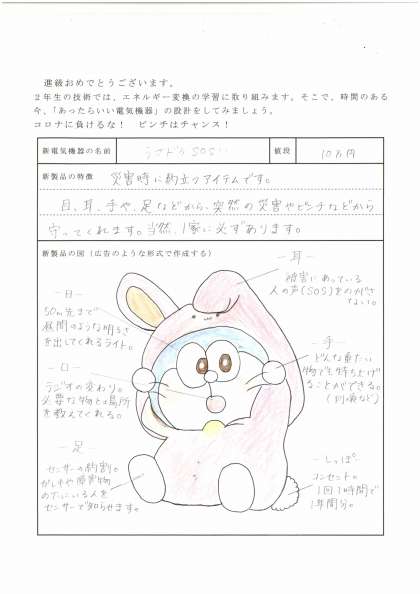 進級おめでとうございます。
2年生の技術では、エネルギー変換の学習に取り組みます。そこで、時間のある
今、「あったらいい電気機器」の設計をしてみましょう。
コロナに負けるな！　ピンチはチャンス！
新電気機器の名前
うさドラSOS
値段
10万円
新製品の特徴
災害時に約立つアイテムです。
目、耳、手や、足などから、突然の災害やピンチなどから
守ってくれます。当然、1家に必ずあります。
新製品の図（広告のような形式で作成する）
－耳－
被害にあっている
人の声(SOS)をのがさ
ない。
－目－
50m先まで
昼間のような明るさ
を出してくれるライト。
－手－
どんな重たい
物でも持ち上げ
ることができる。
－口－
ラジオの変わり。
必要な物と場所
を教えてくれる。
－足－
センサーの約割。
がれきや障害物
の下にいる人を
センサーで知らせます。
－しっぽ－
コンセント。
1回1時間で
1年間分。